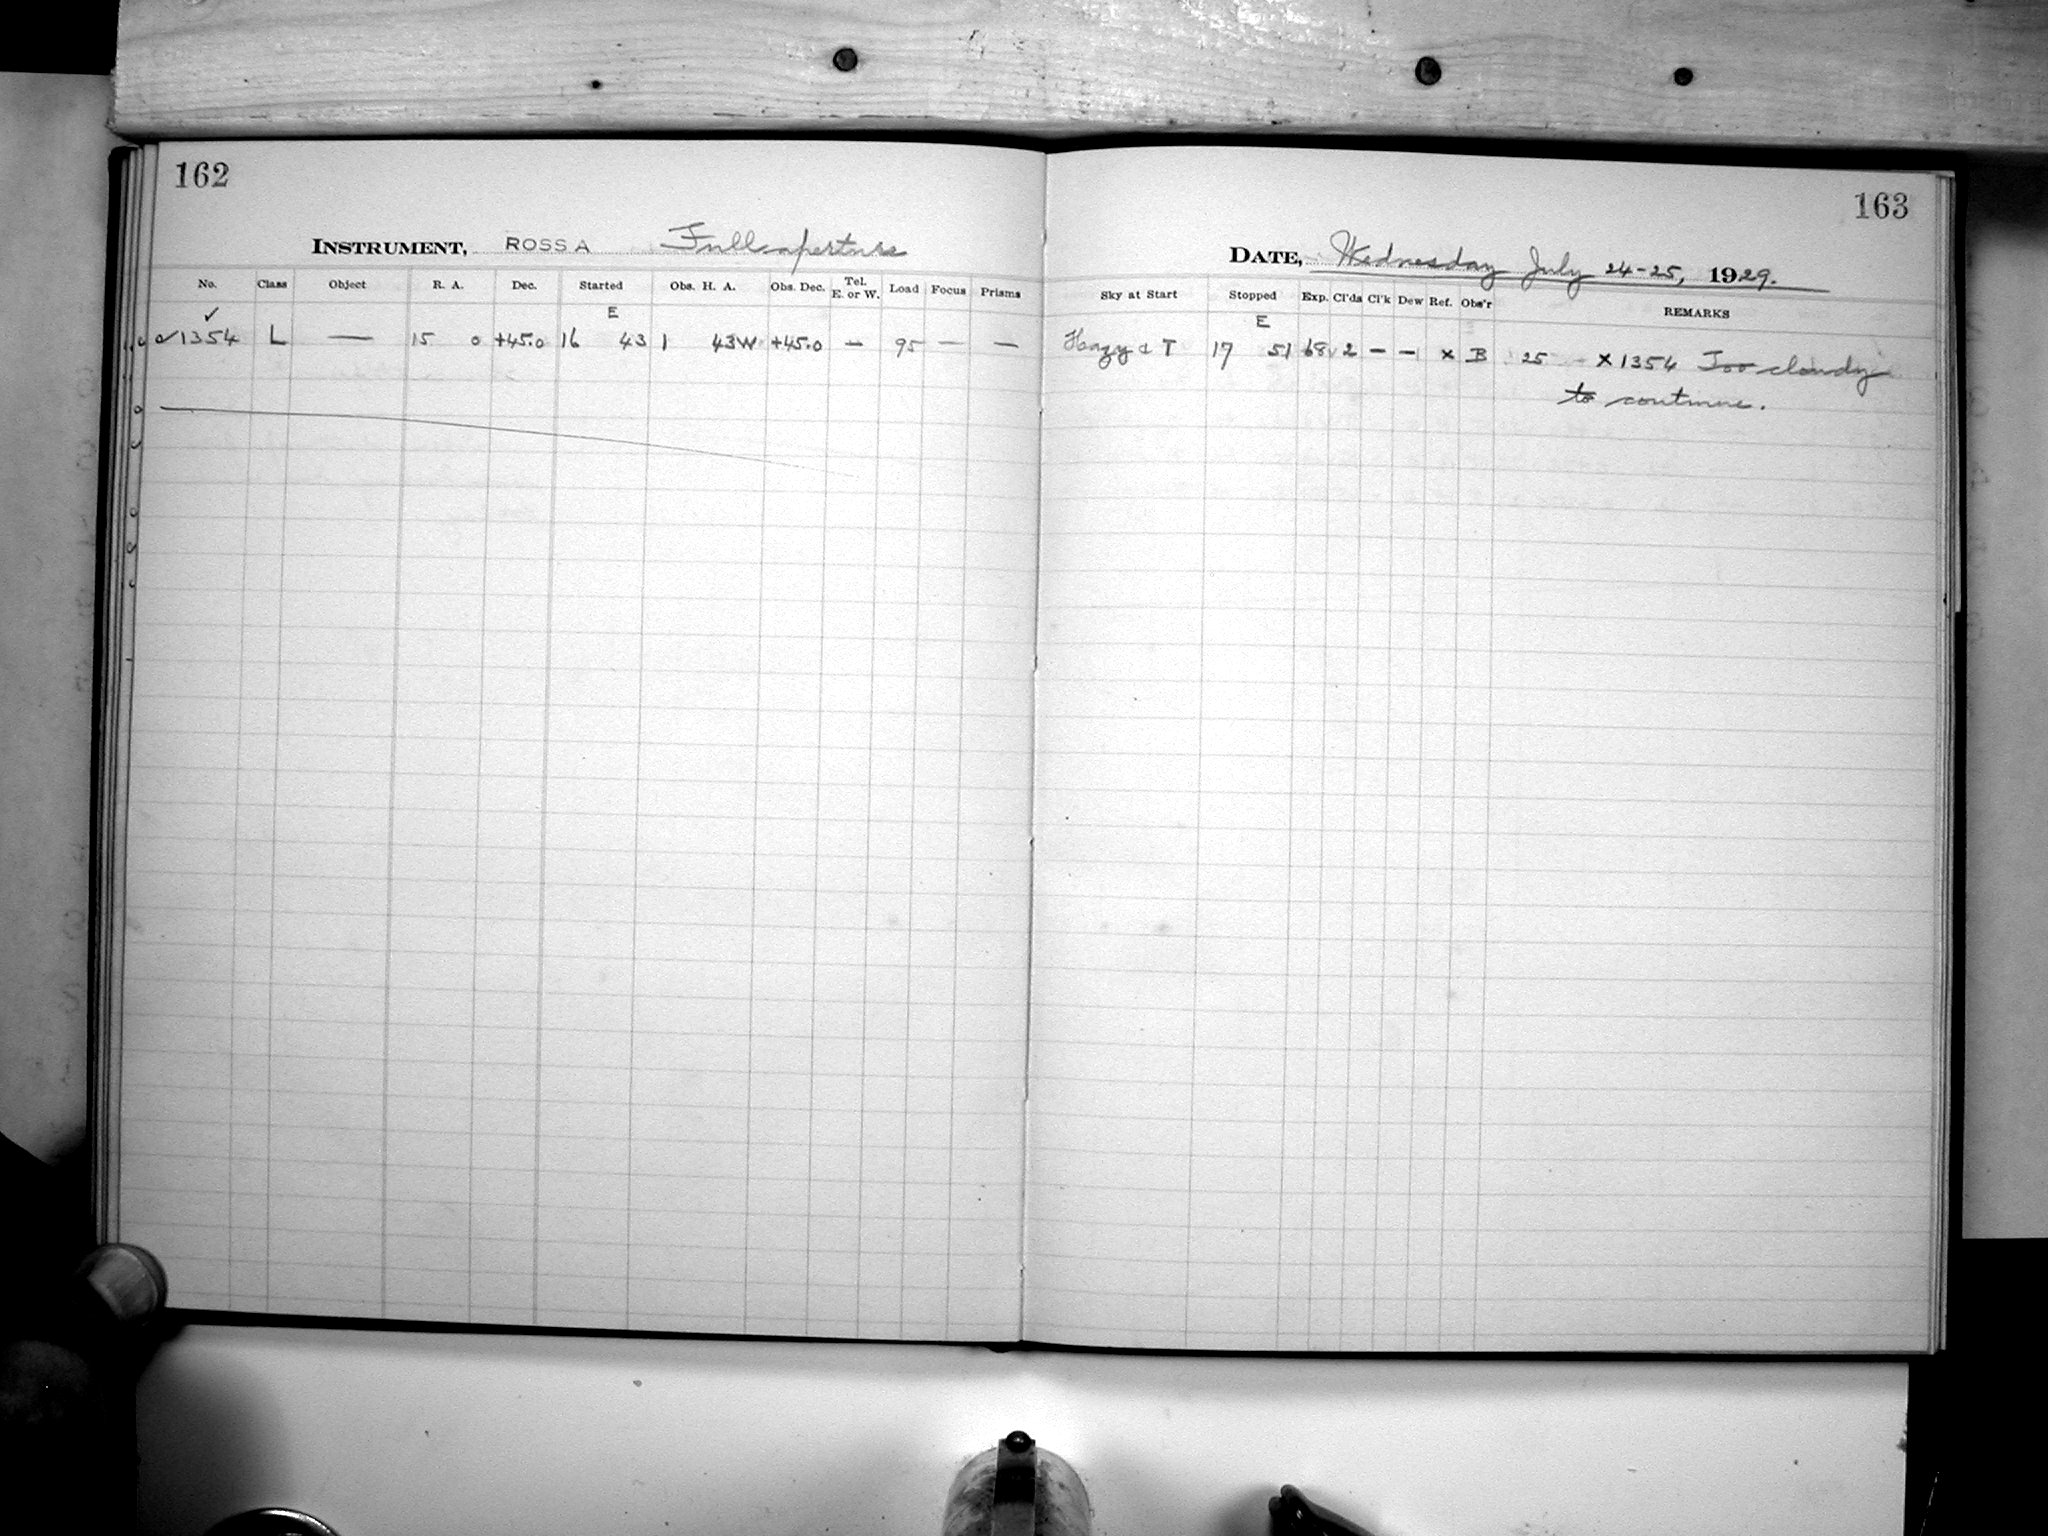 162
INSTRUMENT, ROSS A Full aperture
No. Class Object R. A. Dec. Started Obs. H. A. Obs. Dec. Tel. E. or W. Load Focus Prisms
✓ E
✓1354 L — 15 0 +45.0 16 43 1 43W +45.0 — 95 — —
163
DATE, Wednesday July 24-25, 1929.
Sky at Start Stopped Exp. Cl'ds Cl'k Dew Ref. Obs'r REMARKS
E
Hazy & T 17 51 68 2 — — x B 25 x 1354 Too cloudy
to continue.